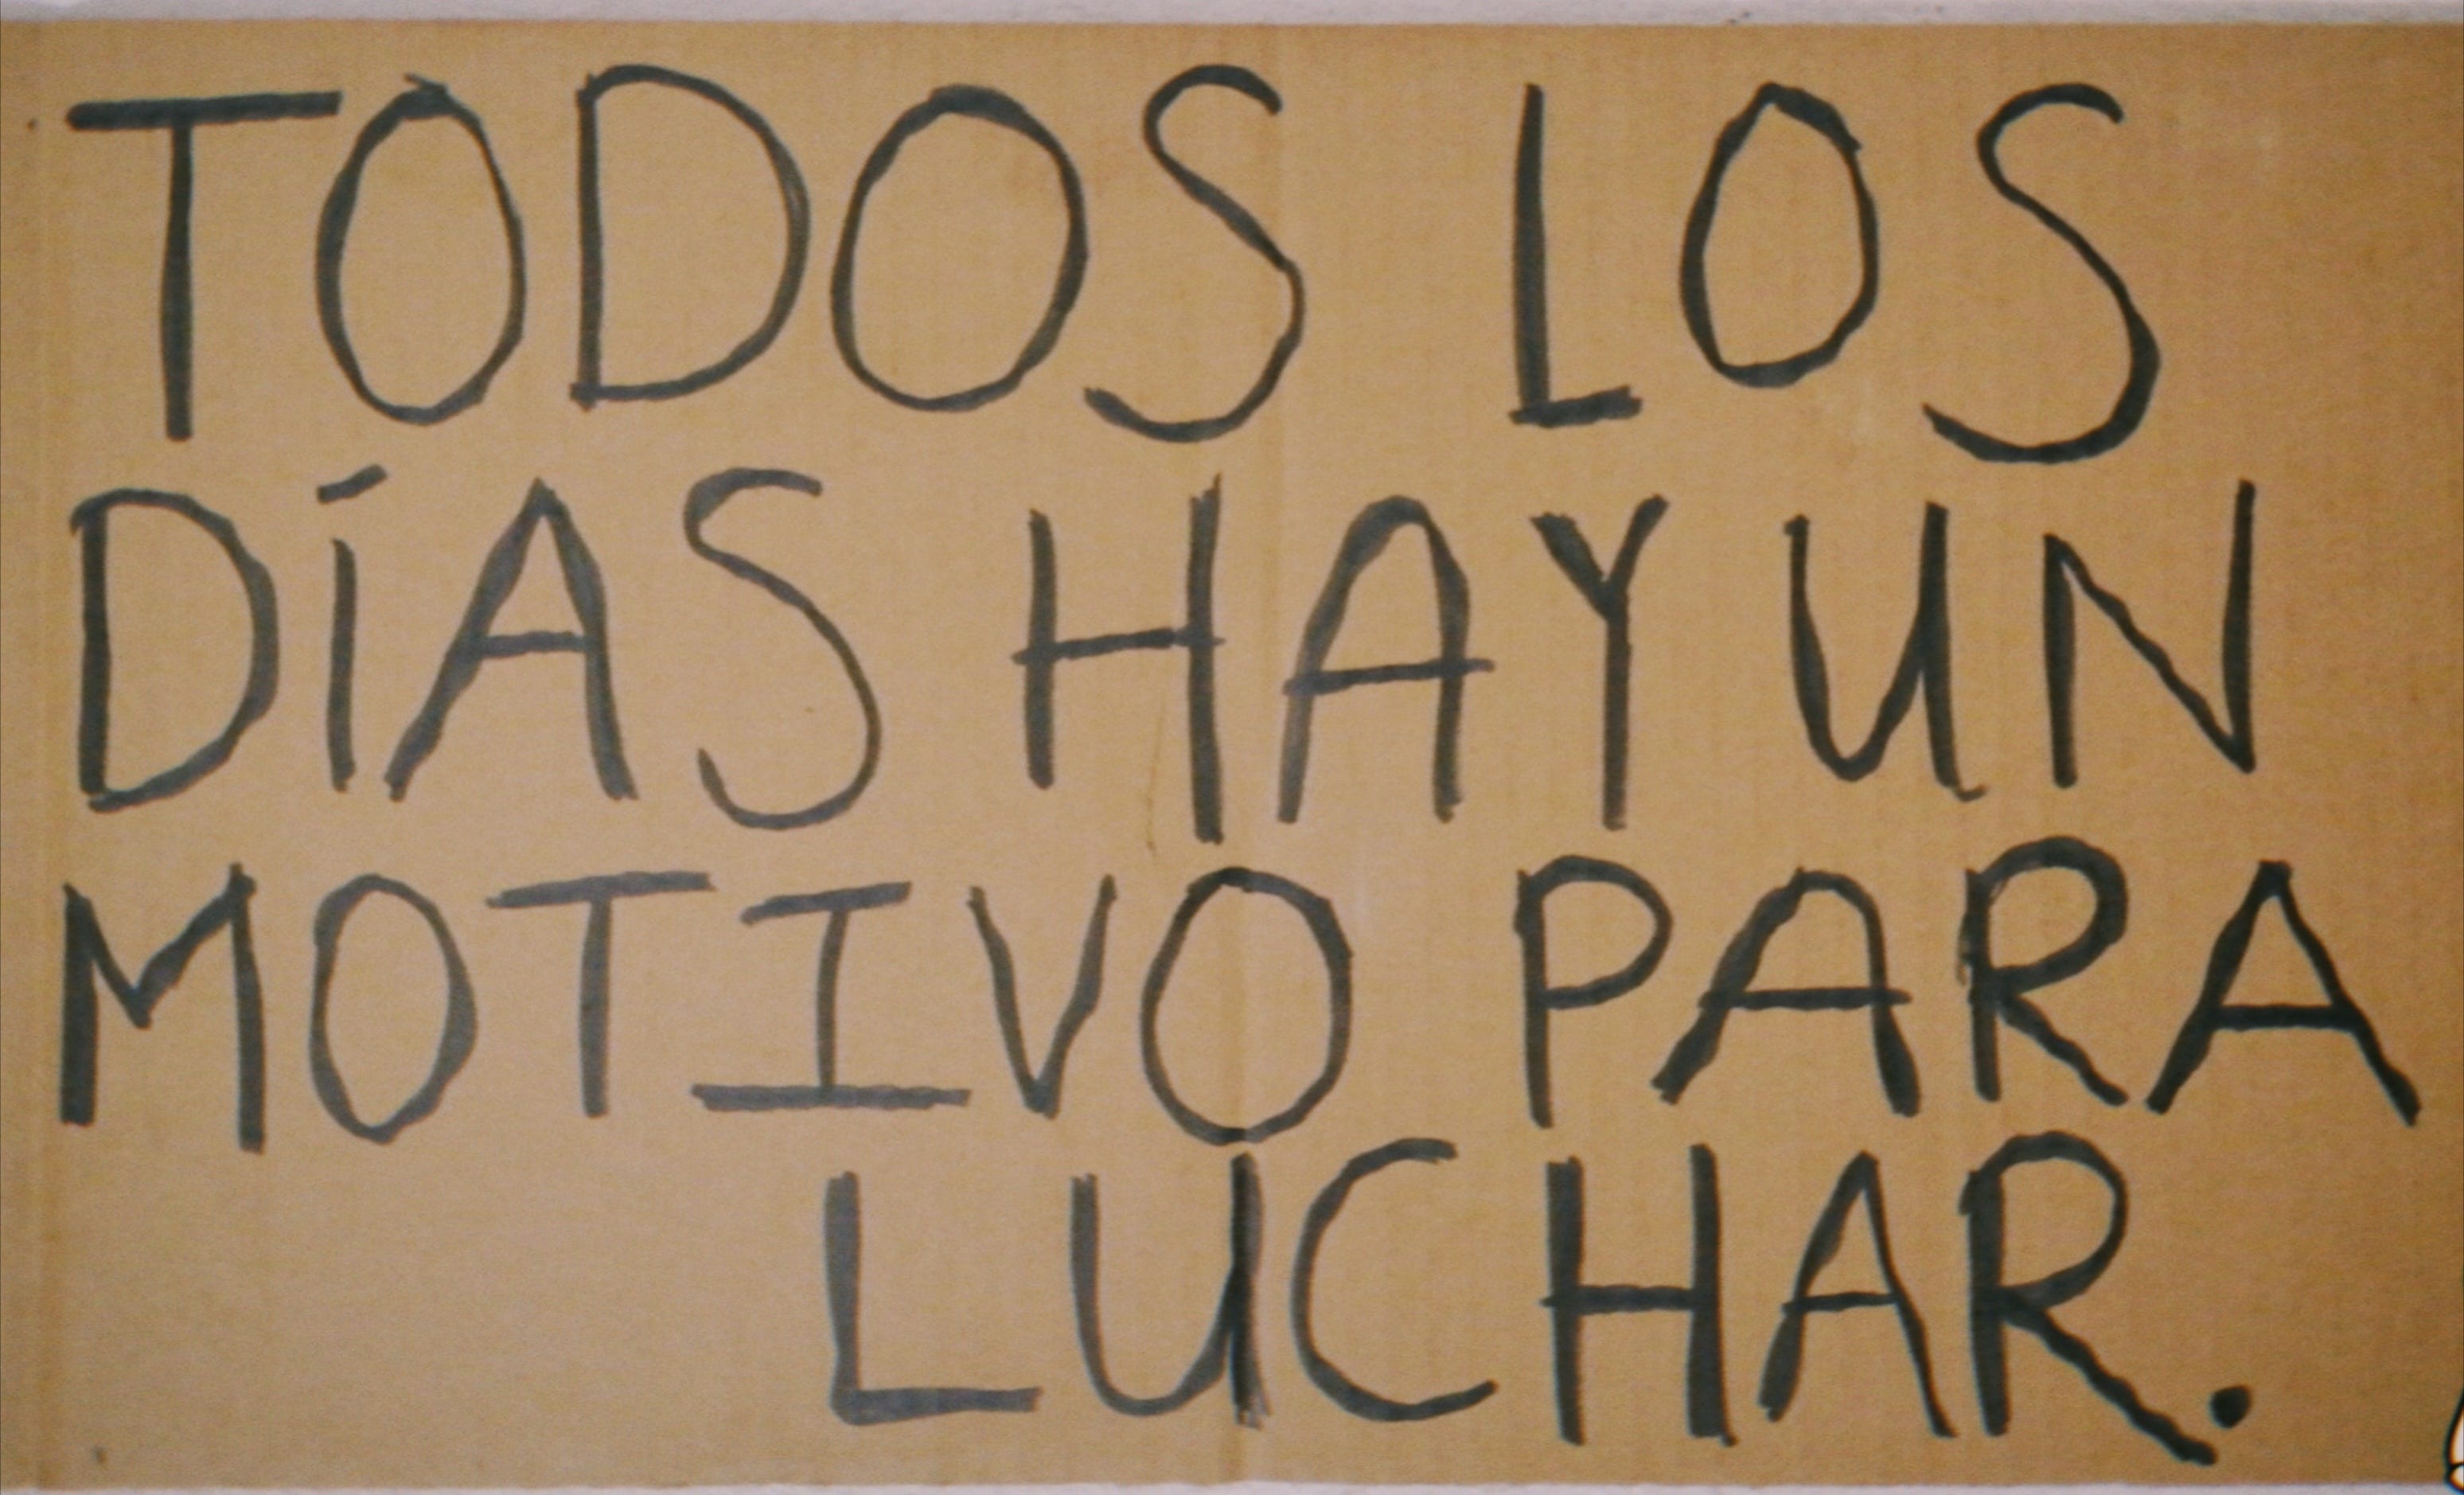 TODOS LOS
DÍAS HAY UN
MOTIVO PARA
LUCHAR.